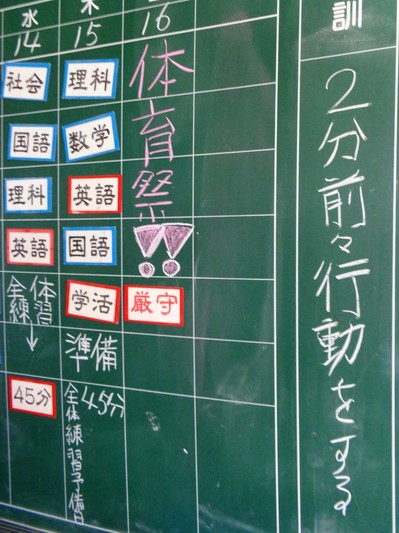 訓
2分前々行動をする
水
14
社会
国語
理科
英語
全体練習
↓
45分
木
15
理科
数学
英語
国語
学活
準備
45分
全体練習予備
16
体育祭!!
厳守